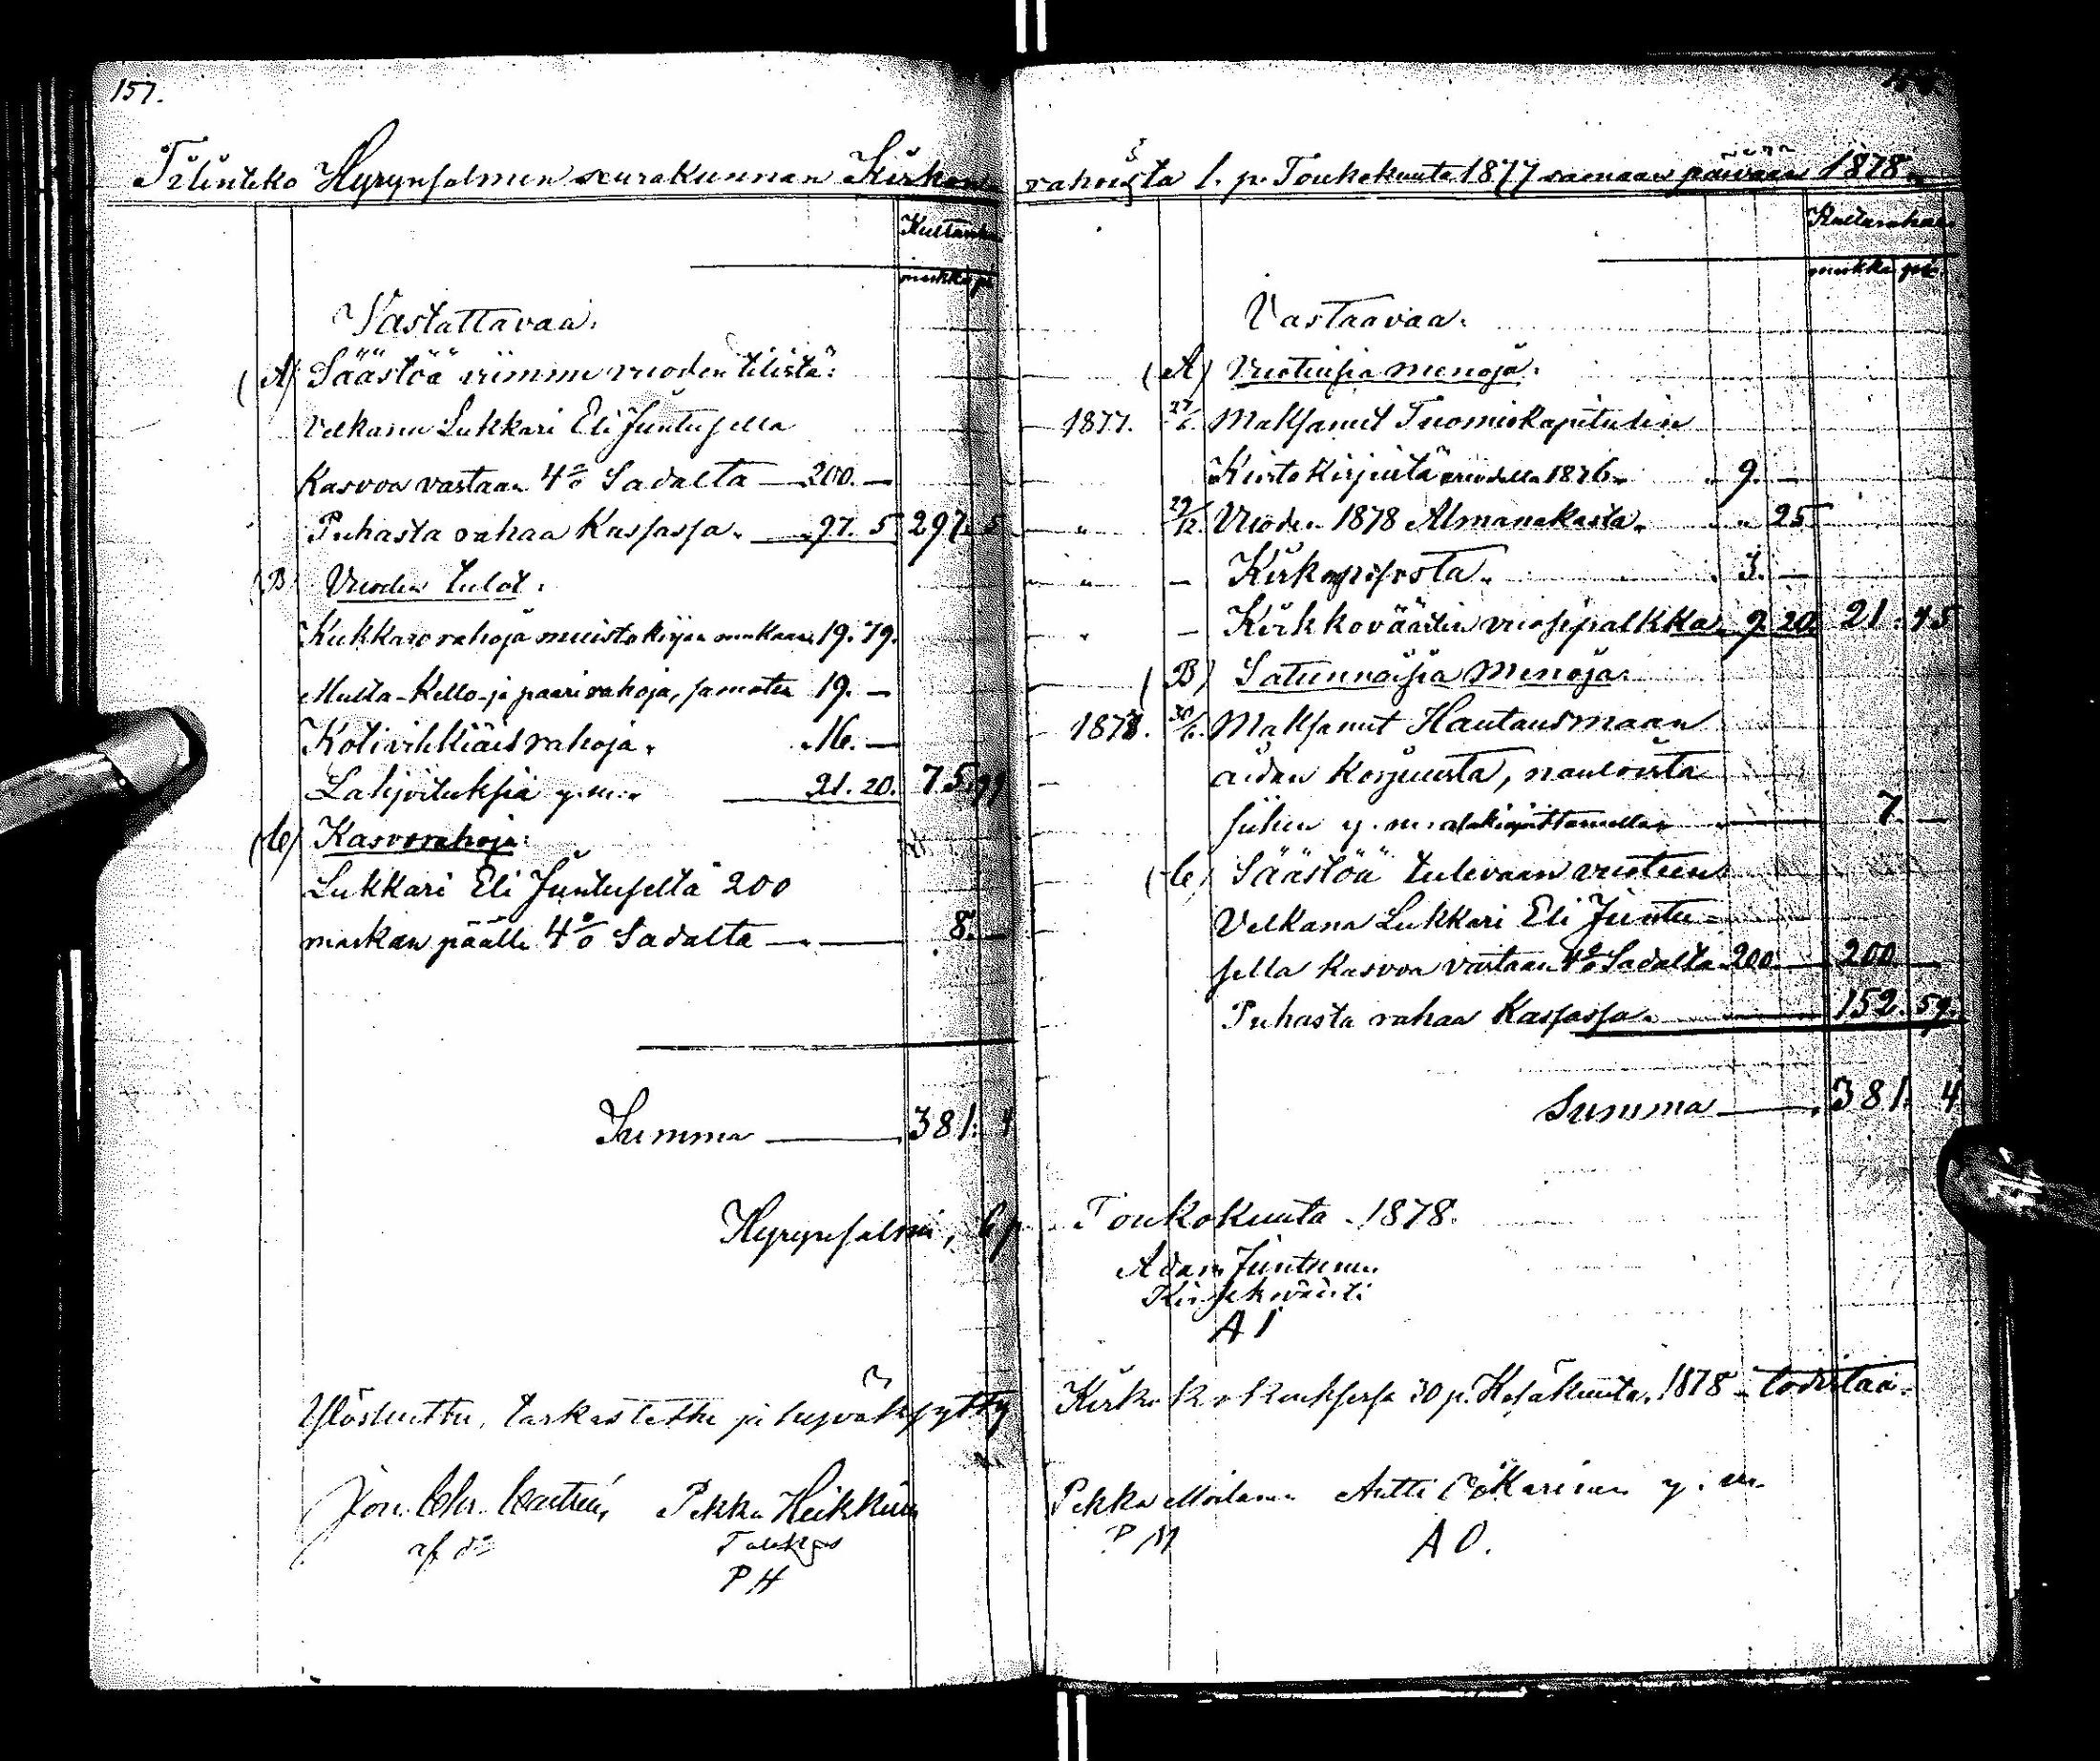 157.
Tilinteko Hyrynsalmen seurakunnan Kirkon
Kultaraha
markka pi
Vastattavaa.
(A) Säästöä viimme vuoden tilistä:
Velkana Lukkari Eli Juntusella
Kasvoa vastaan 4% Sadalta — 200. —
Puhasta rahaa Kassassa. — 97. 5 297. 5
(B) Vuoden tulot:
Kukkaro rahoja muistokirjan mukaan 19. 79.
Multa-Kello- ja paarirahoja, samoten 19. —
Kotivihkiäisrahoja. 16. —
Lahjoituksia y.m. 21. 20. 75. 99
(C) Kasvorahoja:
Lukkari Eli Juntuselta 200
markan päälle 4% Sadalta — 8. —
Summa — 381. 4
Hyrynsalmi, 6 p.
Ylösluettu, tarkastettu ja hyväksytty
Jon. Chr. Castrén, Pekka Heikkinen
P H
rahoista 1. p. Toukokuuta 1877 samaan päivään 1878.
Kultarahaa
markka pi.
Vastaavaa.
(A) Vuotuisia menoja:
1877. 27/6. Maksanut Tuomiokapitulin
Kiertokirjeistä vuodella 1876. 9. —
" 29/12. Vuoden 1878 Almanakasta. " 25
" — Kirkonpesosta. 3. —
" — Kirkkoväärtin vuosipalkka. 9. 20. 21. 45
(B) Satunnaisia Menoja:
1878. 30/6. Maksanut Hautausmaan
aidan korjuusta, nauloista
siihen y.m. — 7. —
(C) Säästöä tulevaan vuoteen
Velkana Lukkari Eli Juntu-
sella kasvoa vastaan 4% Sadalta 200. — 200 —
Puhasta rahaa Kassassa. — 152. 59.
Summa — 381. 4
Toukokuuta 1878.
Adam Juntunen
Kirkkoväärti
A I
Kirkonkokouksessa 30 p. Kesäkuuta 1878 todistaa.
Pekka Moilanen Antti Karinen y. m.
P M A O.